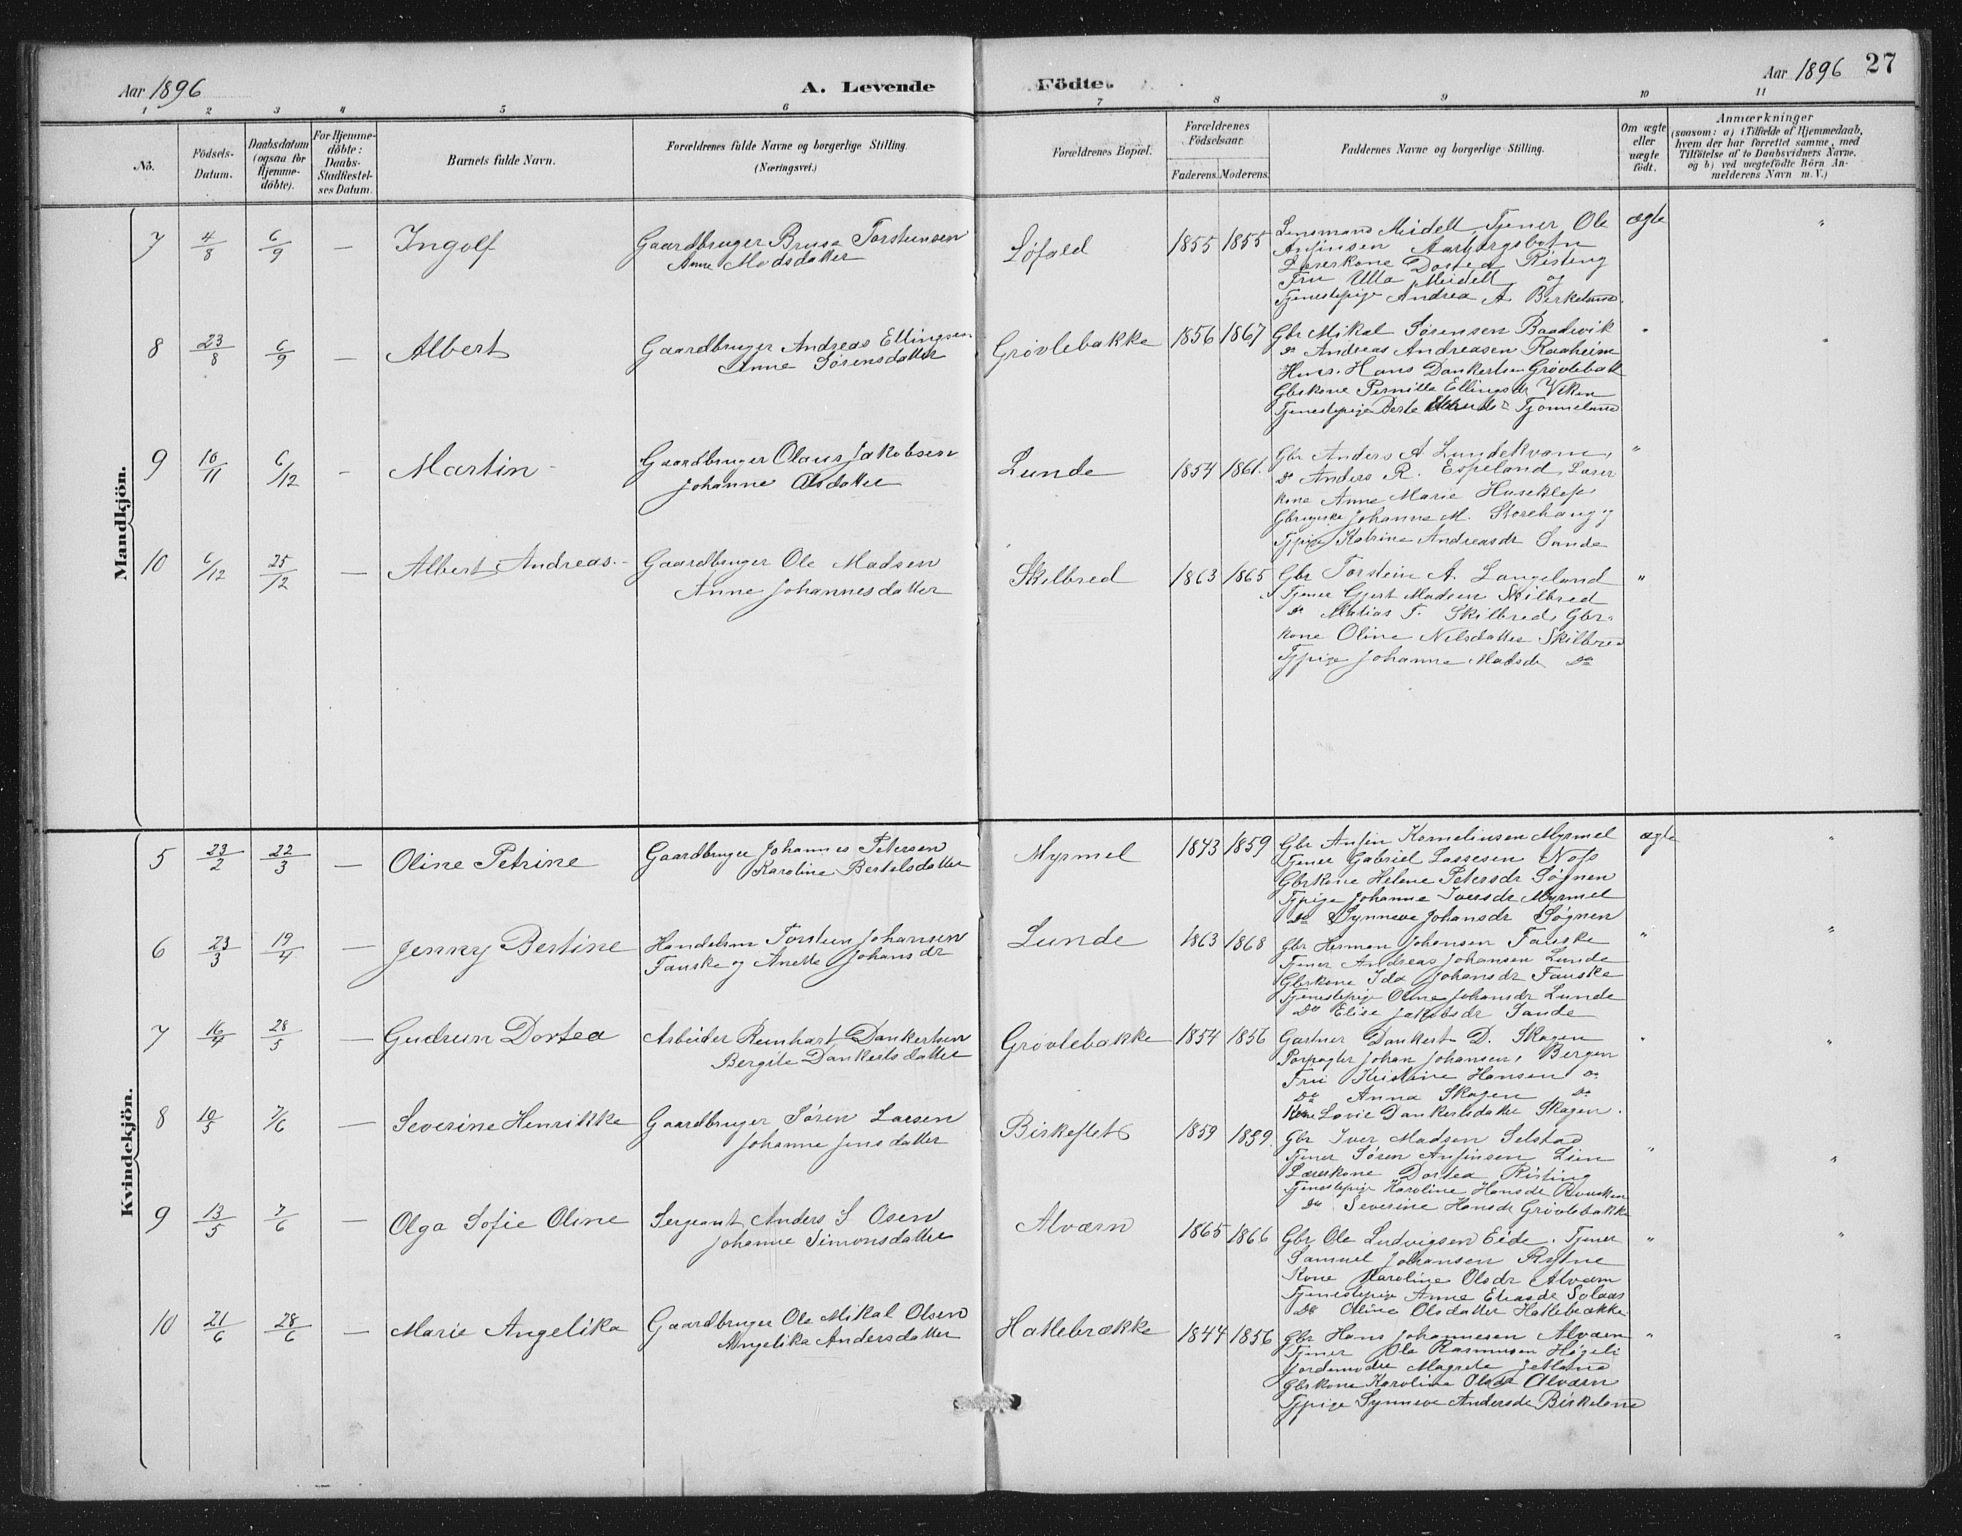 Aar 1896
A. Levende Födte.
Aar 1896 27
1 2 3 4 5 6 7 8 9 10 11
No.
Födsels-Datum.
Daabsdatum (ogsaa for Hjemme-döbte).
For Hjemme-döbte: Daabs-Stadfæstel-ses Datum.
Barnets fulde Navn.
Forældrenes fulde Navne og borgerlige Stilling. (Næringsvei.)
Forældrenes Bopæl.
Forældrenes Födselsaar.
Faderens. Moderens.
Faddernes Navne og borgerlige Stilling.
Om ægte eller uægte födt.
Anmærkninger
(saasom: a) i Tilfælde af Hjemmedaab,
hvem der har forrettet samme, med
Tilföielse af to Daabsvidners Navne,
og b) ved uægtefödte Börn An-
melderens Navn m. V.)
Mandkjön.
7 4/8 6/9 — Ingolf
Gaardbruger Bruse Torsteinsen
Anne Madsdatter
Løfald 1855 1855
Lensmand Meidell, Tjener Ole
Anfinsen Aarbergsbotn
Lærerkone Dortea Risting
Fru Ulla Meidell og
Tjenestepige Andrea A Birkeland.
ægte "
8 23/8 6/9 — Albert
Gaardbruger Andreas Ellingsen
Anne Sørensdatter
Grøvlebakke 1856 1867
Gbr Mikal Sørensen Baadsvik
Do Andreas Andreasen Raaheim
Huus. Hans Dankertsen Grøvlebak
Gbrkone Pernille Ellingsdr Viken
Tjenestepige Berte Tjønneland
" "
9 10/11 6/12 — Martin
Gaardbruger Olaus Jakobsen
Johanne Olsdatter
Lunde 1854 1861.
Gbr Anders A Lundekvam,
Do Anders R. Espeland, Lærer
kone Anne Marie Huseklep
Johanne M. Storehaug
Tjpige Katrine Andreasdr Sande
"
10 6/12 25/12 — Albert Andreas
Gaardbruger Ole Madsen
Anne Johannesdatter
Skilbred 1863 1865
Gbr Torstein A. Langeland
Tjener Gjert Madsen Skilbred
Do Matias T. Skilbred, Gbr.
kone Oline Nilsdatter Skilbred
Tjpige Johanne Madsdr Do
"
Kvindekjön.
5 23/2 22/3 — Oline Petrine
Gaardbruger Johannes Petersen
Karoline Bertelsdatter
Myrmel 1843 1859
Gbr Anfin Korneliusen Myrmel
Tjener Gabriel Lassesen Nofs
Gbrkone Helene Petersdr Søgnen
Tjpige Johanne Iversdr Myrmel
Do Synneve Johansdr Søgnen
ægte "
6 23/3 19/4 — Jenny Bertine
Handelsm Torstein Johansen
Fauske og Anette Johansdr
Lunde 1863 1868
Gbr Herman Johansen Fauske
Tjener Andreas Johansen Lunde
Gbrkone Ida Johansdr Fauske
Tjenestepige Oline Johansdr Lunde
Do Elise Jakobsdr Sande
" "
7 16/4 28/5 — Gudrun Dortea
Arbeider Reinhart Dankertsen
Bergite Dankertsdatter
Grøvlebakke 1854 1856
Gartner Dankert D. Skagen
Johan Johansen, Bergen
Fru Kristine Hansen Do
Do Anna Skagen Do
Kone Lovise Dankertsdatter Skagen.
" "
8 10/5 7/6 — Severine Henrikke
Gaardbruger Søren Larsen
Johanne Jensdatter
Birkeflet 1859 1859.
Gbr Iver Madsen Selstad
Tjener Søren Anfinsen Lien
Lærerkone Dortea Risting
Tjenestepige Karoline Hansdr
Do Severine Hansdr Grøvlebakke
" "
9 13/5 7/6 — Olga Sofie Oline
Sergeant Anders S Osen
Johanne Simonsdatter
Alværn 1865 1866
Gbr Ole Ludvigsen Eide. Tjener
Samuel Johansen Rytne
Kone Karoline Olsdr Alværn
Tjenestepige Anne Eliasdr Solaas
Do Oline Olsdatter Hatlebrække
" "
10 21/6 28/6 — Marie Angelika
Gaardbruger Ole Mikal Olsen
Angelika Andersdatter
Hatlebrække 1844 1856
Gbr Hans Johannesen Alværn
Tjener Ole Rasmusen Høgeli
Jordemoder Magrete Jetland
Gbrkone Karoline Olsdr Alværn
Tjpige Synneve Andersdr Birkeland
" "